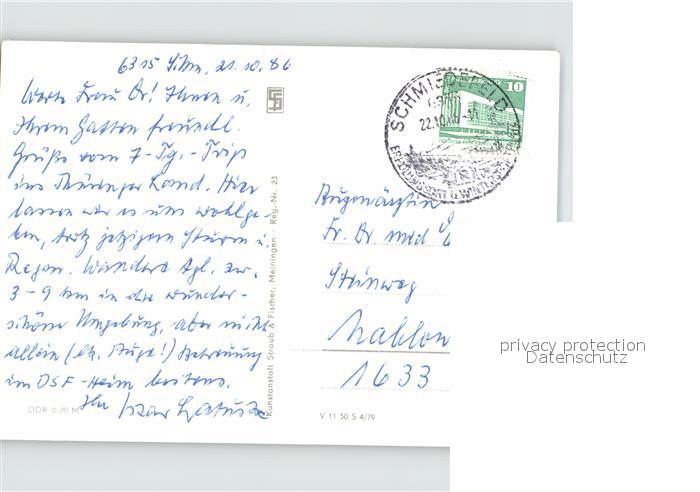 6315 21.10.86
Werte Frau Dr.! Ihnen u.
Ihrem Gatten freundl.
Grüße vom 7-Tg.-Trip
ins Thüringer Land. Hier
lassen wir es uns wohlge-
hen, trotz jetzigem Sturm u.
Regen. Wandere tgl. zw.
3-9 km in der wunder-
schöne Umgebung, aber nicht
allein (lk. Auge!) Betreuung
im DSF-Heim bestens.
Ihr
DDR 0,20 M
Kunstanstalt Straub & Fischer, Meiningen · Reg.-Nr. 23
SCHMIEDEFELD
22.10.86
10
Augenärztin
Fr. Dr. med
Steinweg
Mahlow
1633
V 11 50 S 4/79
privacy protection
Datenschutz